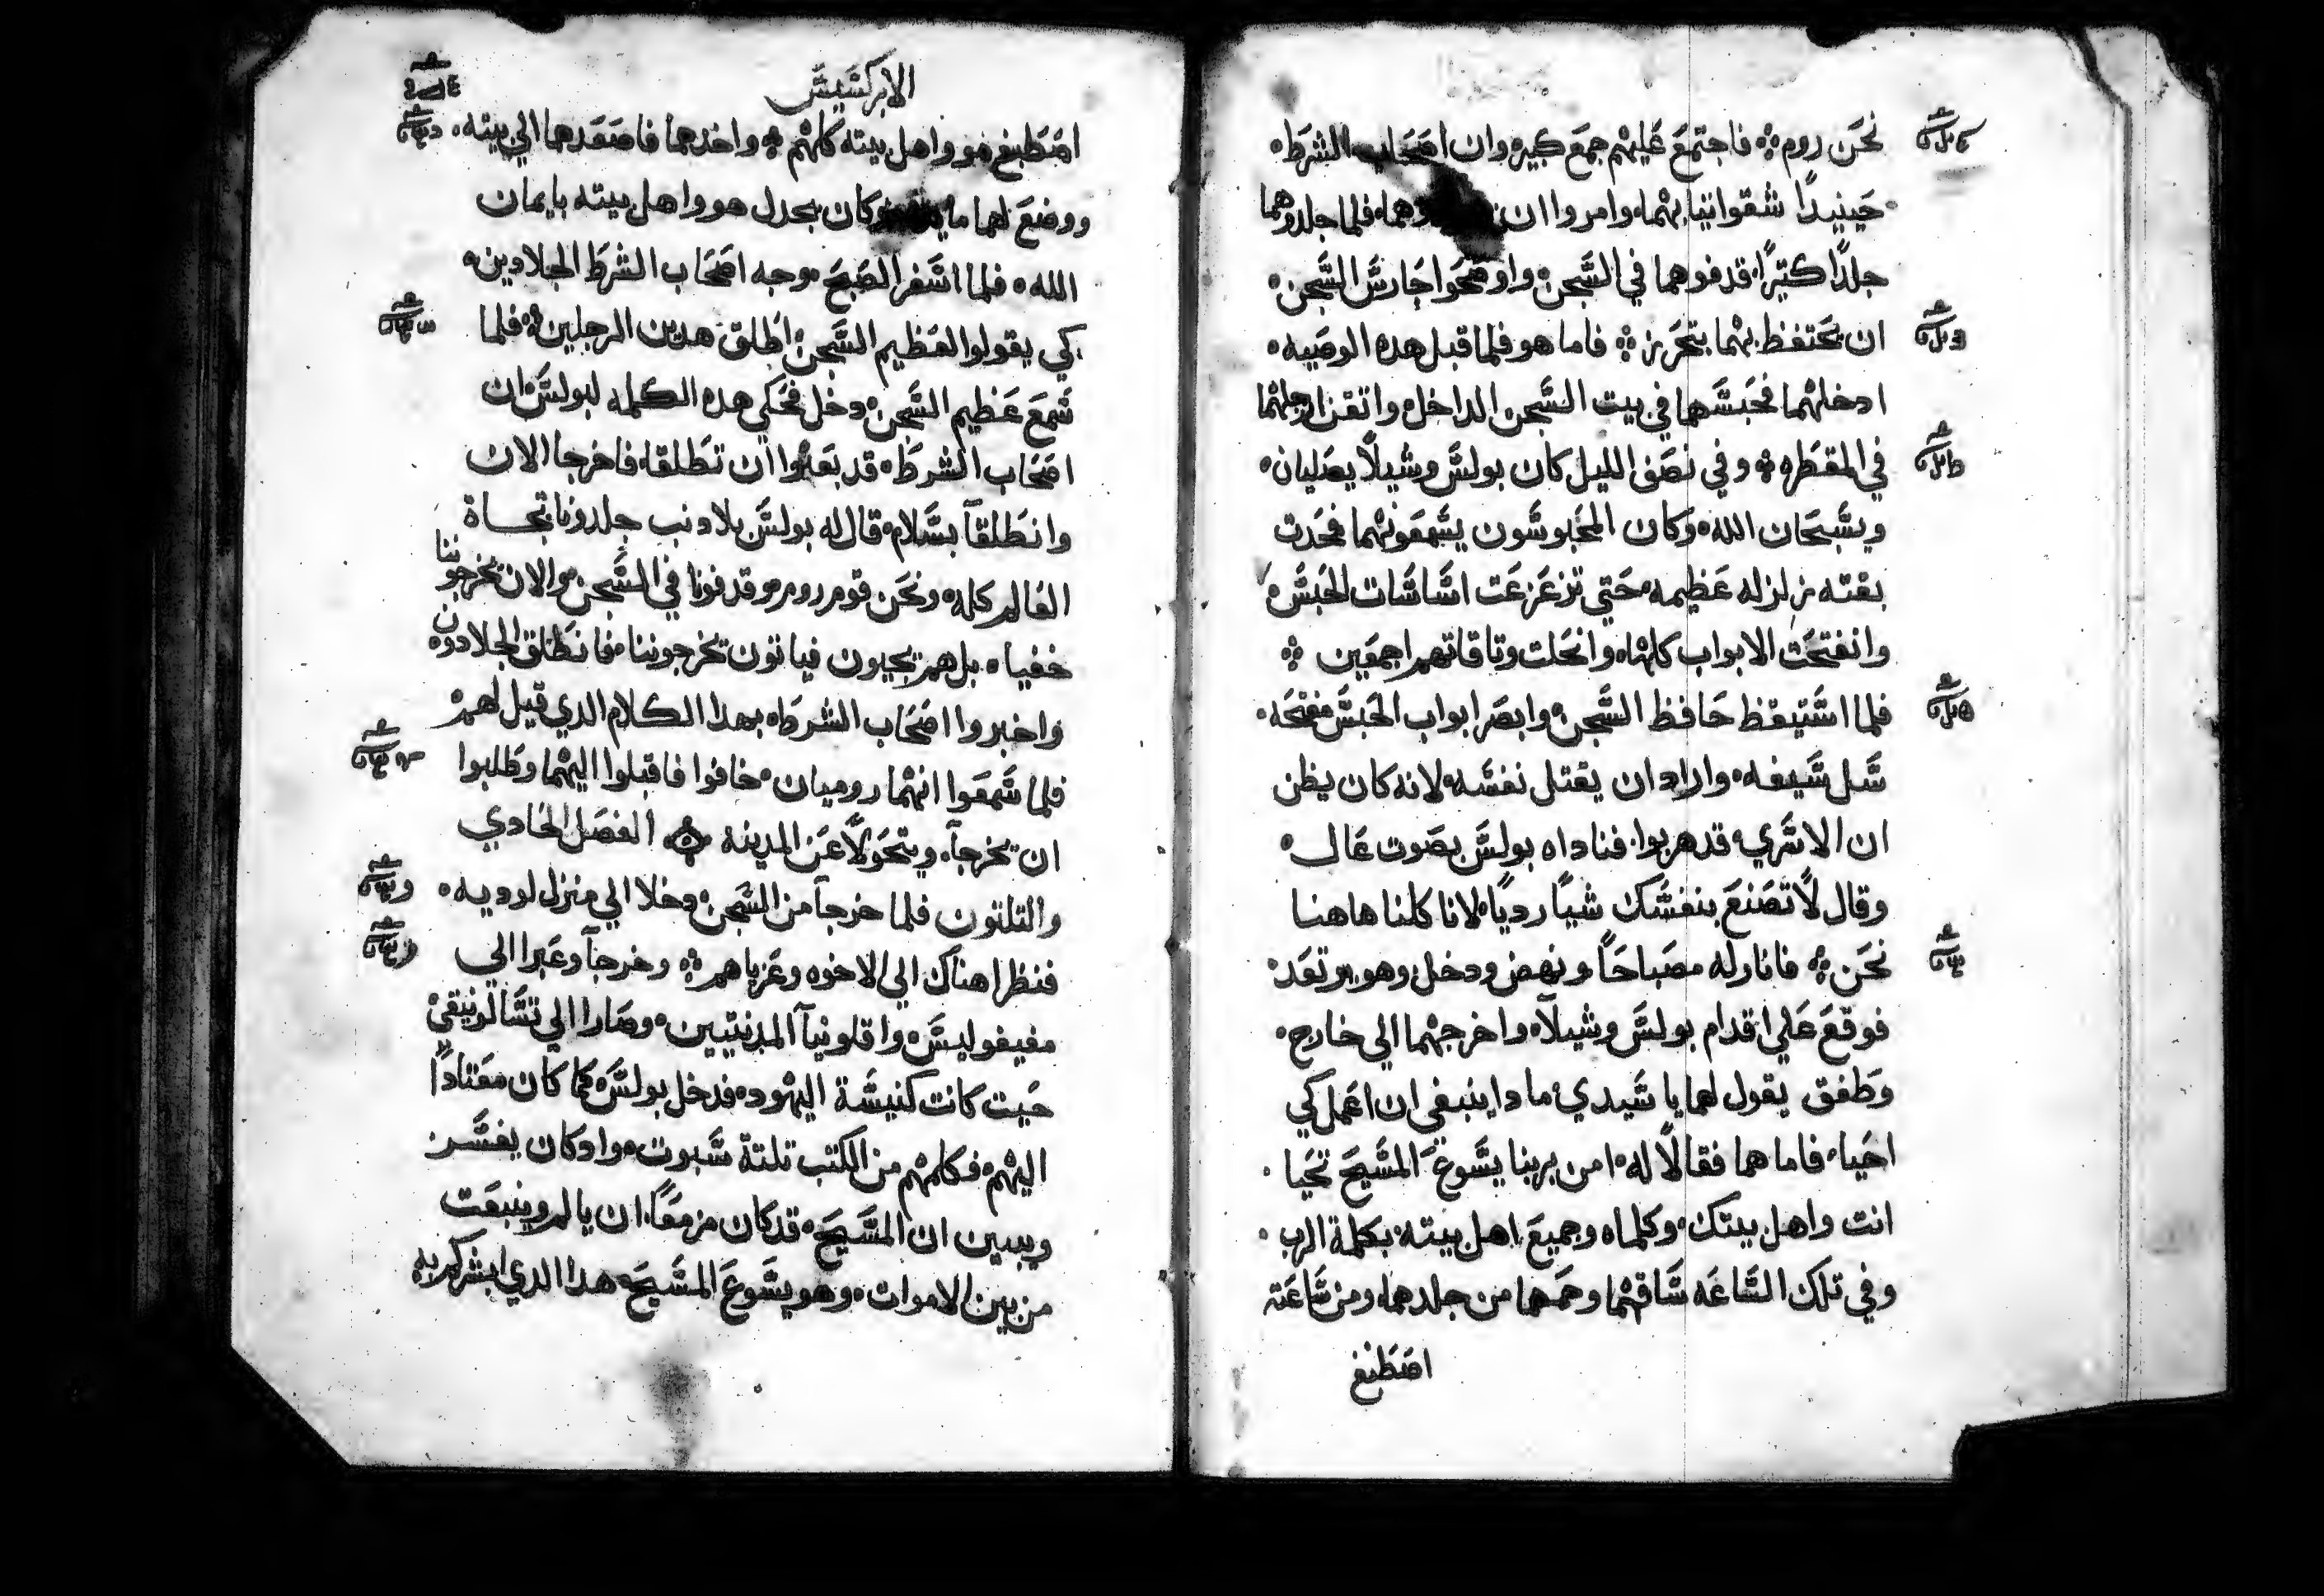 نحَن روم فاجتمَعَ عَليهم جمعَ كبير وان اصَحَاب الشرطَه
حَينيدًا شقوا تيابهما وامروا ان فلما جلدوهما
جلدًا كتيرًا قدفوهما في السَّجن واوصَوا حَارسَ السَّجن
ان يحَتفظ بهما بتحَريز فاما هو فلما قبل هده الوصَيه
ادخلهما فحَبسَّهما في بيت السَّجن الداخل واتقن ارجلهما
في المقطَره وفي نصَف الليل كان بولسَّ وشيلاً يصَليان
ويسَّبحَان الله وكان المحَبوسَّون يسَّمعَونهما فحَدت
بغته زلزله عَظيمه حَتي تزعَزعَت اسَّاسَّات الحَبسَّ
وانفتحَت الابواب كلها وانحَلت وتاقاتهم اجمعَين
فلما اسَّتيقظ حَافظ السَّجن وابصَر ابواب الحَبسَّ مفتحَه
سَّل سَّيفه واراد ان يقتل نفسَّه لانه كان يظن
ان الاسَّري قد هربوا فناداه بولسَّ بصَوت عَال
وقال لاً تصَنعَ بنفسَّك شيًا رديًا لانا كلنا هاهنا
نحَن فاناوله مصَباحَاً ونهض ودخل وهو يرتعَد
فوقعَ عَلي اقدام بولسَّ وشيلآ واخرجهما الي خارج
وطَفق يقول لهما يا سَّيدي مادا ينبغي ان اعَمل كي
احَيا فاما هما فقالاً له امن بربنا يسَّوعَ المسَّيحَ تحَيا
انت واهل بيتك وكلماه وجميعَ اهل بيته بكلمة الرب
وفي تلك السَّاعَه سَّاقهما وحَمهما من جلدهما ومن سَّاعَته
اصَطَبغ
الابركسَيسَّ
اصَطَبغ هو واهل بيته كلهم واخدهما فاصَعَدهما الي بيته
ووضعَ لهما وكان يجدل هو واهل بيته بايمان
الله فلما اسَّفر الصَبحَ وجه اصَحَاب الشرطَ الجلادين
كي يقولوا لعَظيم السَّجن اطَلق هدين الرجلين فلما
سَّمعَ عَظيم السَّجن دخل فحَكي هده الكلمه لبولسَّ ان
اصَحَاب الشرطَه قد بعَتوا ان تطَلقا فاخرجا الان
وانطَلقآ بسَّلام قال له بولسَّ بلا دنب جلدونا تجاة
العَالم كله ونحَن قوم روم وقدفونا في السَّجن والان يخرجوننا
خفيا بل هم يجيون فياتون يخرجوننا فانطَلق الجلادون
واخبروا اصَحَاب الشرطَه بهدا الكلام الدي قيل لهم
فلما سَّمعَوا انهما روميان خافوا فاقبلوا اليهما وطَلبوا
ان يخرجآ ويتحَولاً عَن المدينه الفصَل الحَادي
والتلتون فلما خرجآ من السَّجن دخلا الي منزل لوديه
فنظرا هناك الي الاخوه وعَزياهم وخرجآ وعَبرا الي
مفيفوليسَّ واقلونيآ المدنيتيين وصَارا الي تسَّالونيقي
حَيت كانت كنيسَّة اليهود فدخل بولسَّ كما كان معَتاداً
اليهم فكلمهم من الكتب تلتة سَّبوت واد كان يفسَّر
ويبين ان المسَّيحَ قد كان مزمعَاً ان يالم وينبعَت
من بين الاموات وهو يسَّوعَ المسَّيحَ هدا الدي ابشركم به